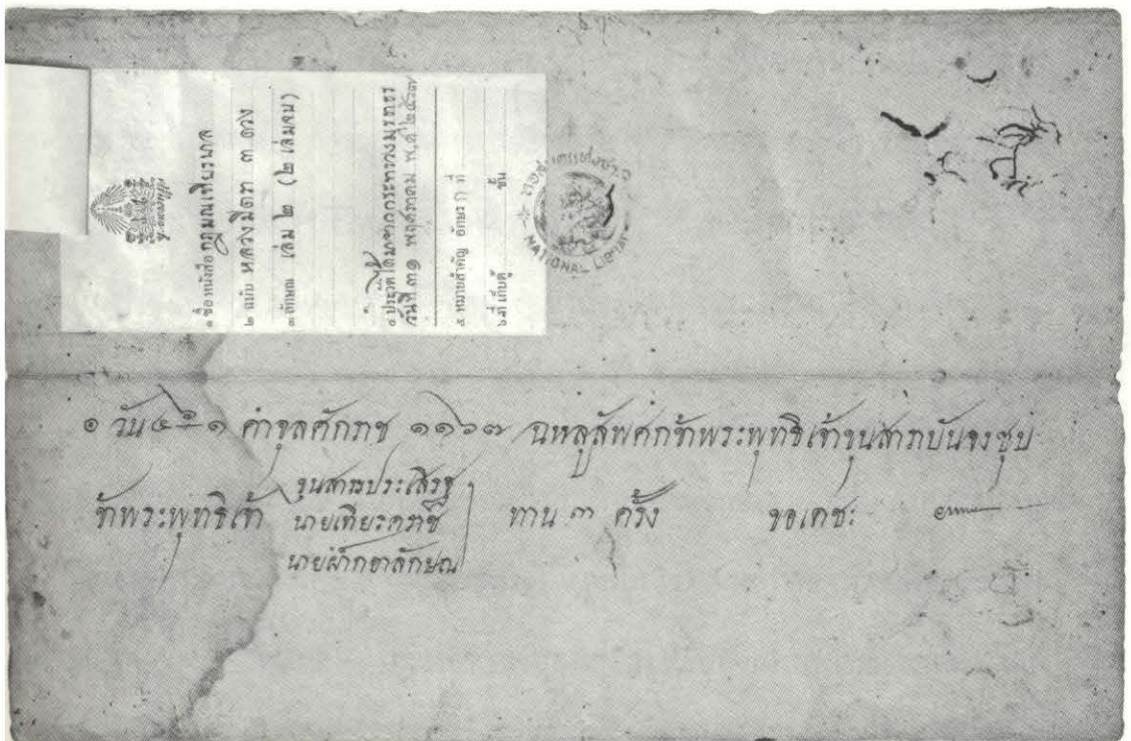 ๑ ชื่อหนังสือ กฎมณเทียรบาล
๒ ฉบับ หลวงมีตรา ๓ ดวง
๓ ลักษณ เล่ม ๒ (๒ เล่มจบ)
๔ ประวัติ ได้มาจากกระทรวงมุรธาธร
วันที่ ๓๑ พฤศภาคม พ,ศ ๒๔๖๗
๕ หมายสำคัญ อักษร ก ที่
๖ ที่ เก็บตู้ ชั้น
หอสมุดแห่งชาติ
NATIONAL LIBRARY
๑ วัน ๔ ๑ ค่ำจุลศักราช ๑๑๖๗ ฉลูสัพศกข้าพระพุทธิเจ้าขุนสารบันจงชุบ
ข้าพระพุทธิเจ้า
ขุนสารประเสิรฐ
นายเทียรฆราช
นายฝักอาลักษณ
ทาน ๓ ครั้ง ขอเดชะ